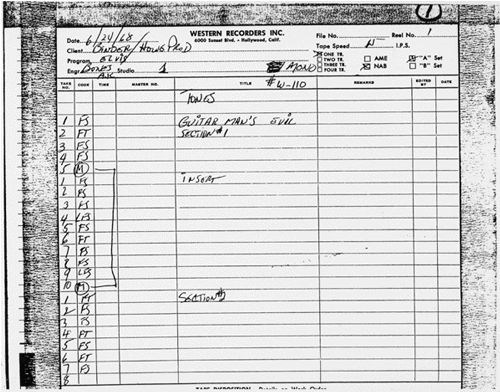 1
WESTERN RECORDERS INC.
6000 Sunset Blvd. - Hollywood, Calif.
File No. Reel No. 1
Date 6/24/68
Client BINDER/HOWE PROD
Tape Speed I.P.S.
Program ELVIS
Engr. BONES Studio 1
MONO
ONE TR.
TWO TR. AME "A" Set
THREE TR. NAB "B" Set
FOUR TR.
# W-110
TAKE NO. CODE TIME MASTER NO. TITLE REMARKS EDITED BY DATE
TONES
1 FS GUITAR MAN'S EVIL
2 FT SECTION #1
3 FS
4 FS
5 M
1 FS INSERT
2 FS
3 FS
4 LFS
5 FS
6 FT
7 FS
8 FS
9 LFS
10 M
1 FT SECTION #
2 FS
3 FS
4 FT
5 FS
6 FT
7 FS
8
TAPE DISPOSITION Details on Work Order